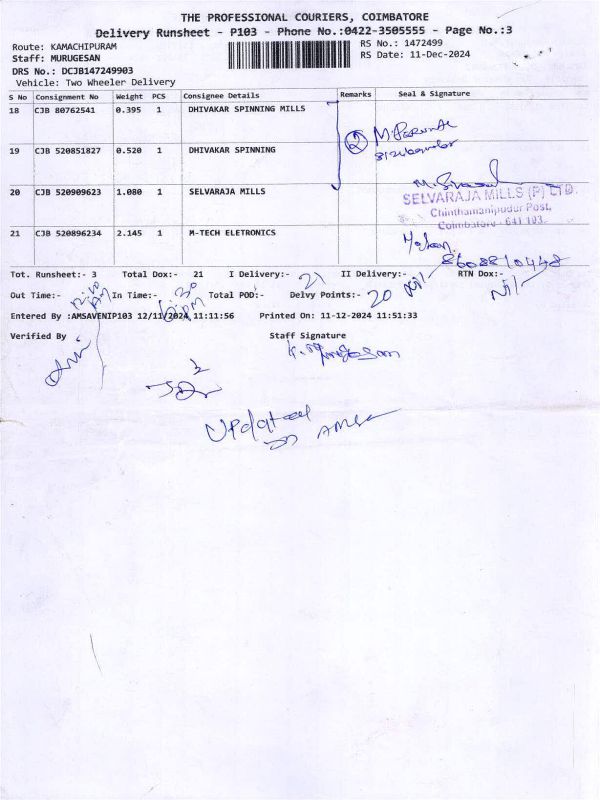 THE PROFESSIONAL COURIERS, COIMBATORE
Delivery Runsheet - P103 - Phone No.:0422-3505555 - Page No.:3
Route: KAMACHIPURAM RS No.: 1472499
Staff: MURUGESAN RS Date: 11-Dec-2024
DRS No.: DCJB147249903
Vehicle: Two Wheeler Delivery
S No Consignment No Weight PCS Consignee Details Remarks Seal & Signature
18 CJB 80762541 0.395 1 DHIVAKAR SPINNING MILLS
2
19 CJB 520851827 0.520 1 DHIVAKAR SPINNING
20 CJB 520909623 1.080 1 SELVARAJA MILLS
SELVARAJA MILLS (P) LTD.
Chinthamanipudur Post,
Coimbatore - 641 103.
21 CJB 520896234 2.145 1 M-TECH ELETRONICS
8608810448
Tot. Runsheet:- 3 Total Dox:- 21 I Delivery:- 21 II Delivery:- Nil RTN Dox:- Nil
Out Time:- In Time:- 6:30 PM Total POD:- Delvy Points:- 20
Entered By :AMSAVENIP103 12/11/2024 11:11:56 Printed On: 11-12-2024 11:51:33
Verified By Staff Signature
Updated